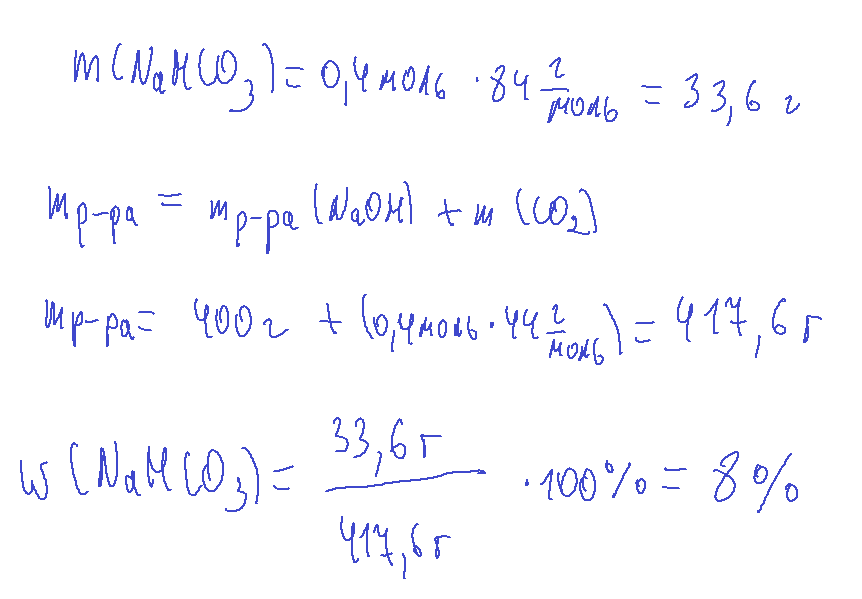 m(NaHCO₃) = 0,4 моль · 84 г/моль = 33,6 г
mр-ра = mр-ра (NaOH) + m (CO₂)
mр-ра = 400 г + (0,4 моль · 44 г/моль) = 417,6 г
w (NaHCO₃) = 33,6 г / 417,6 г · 100% = 8%